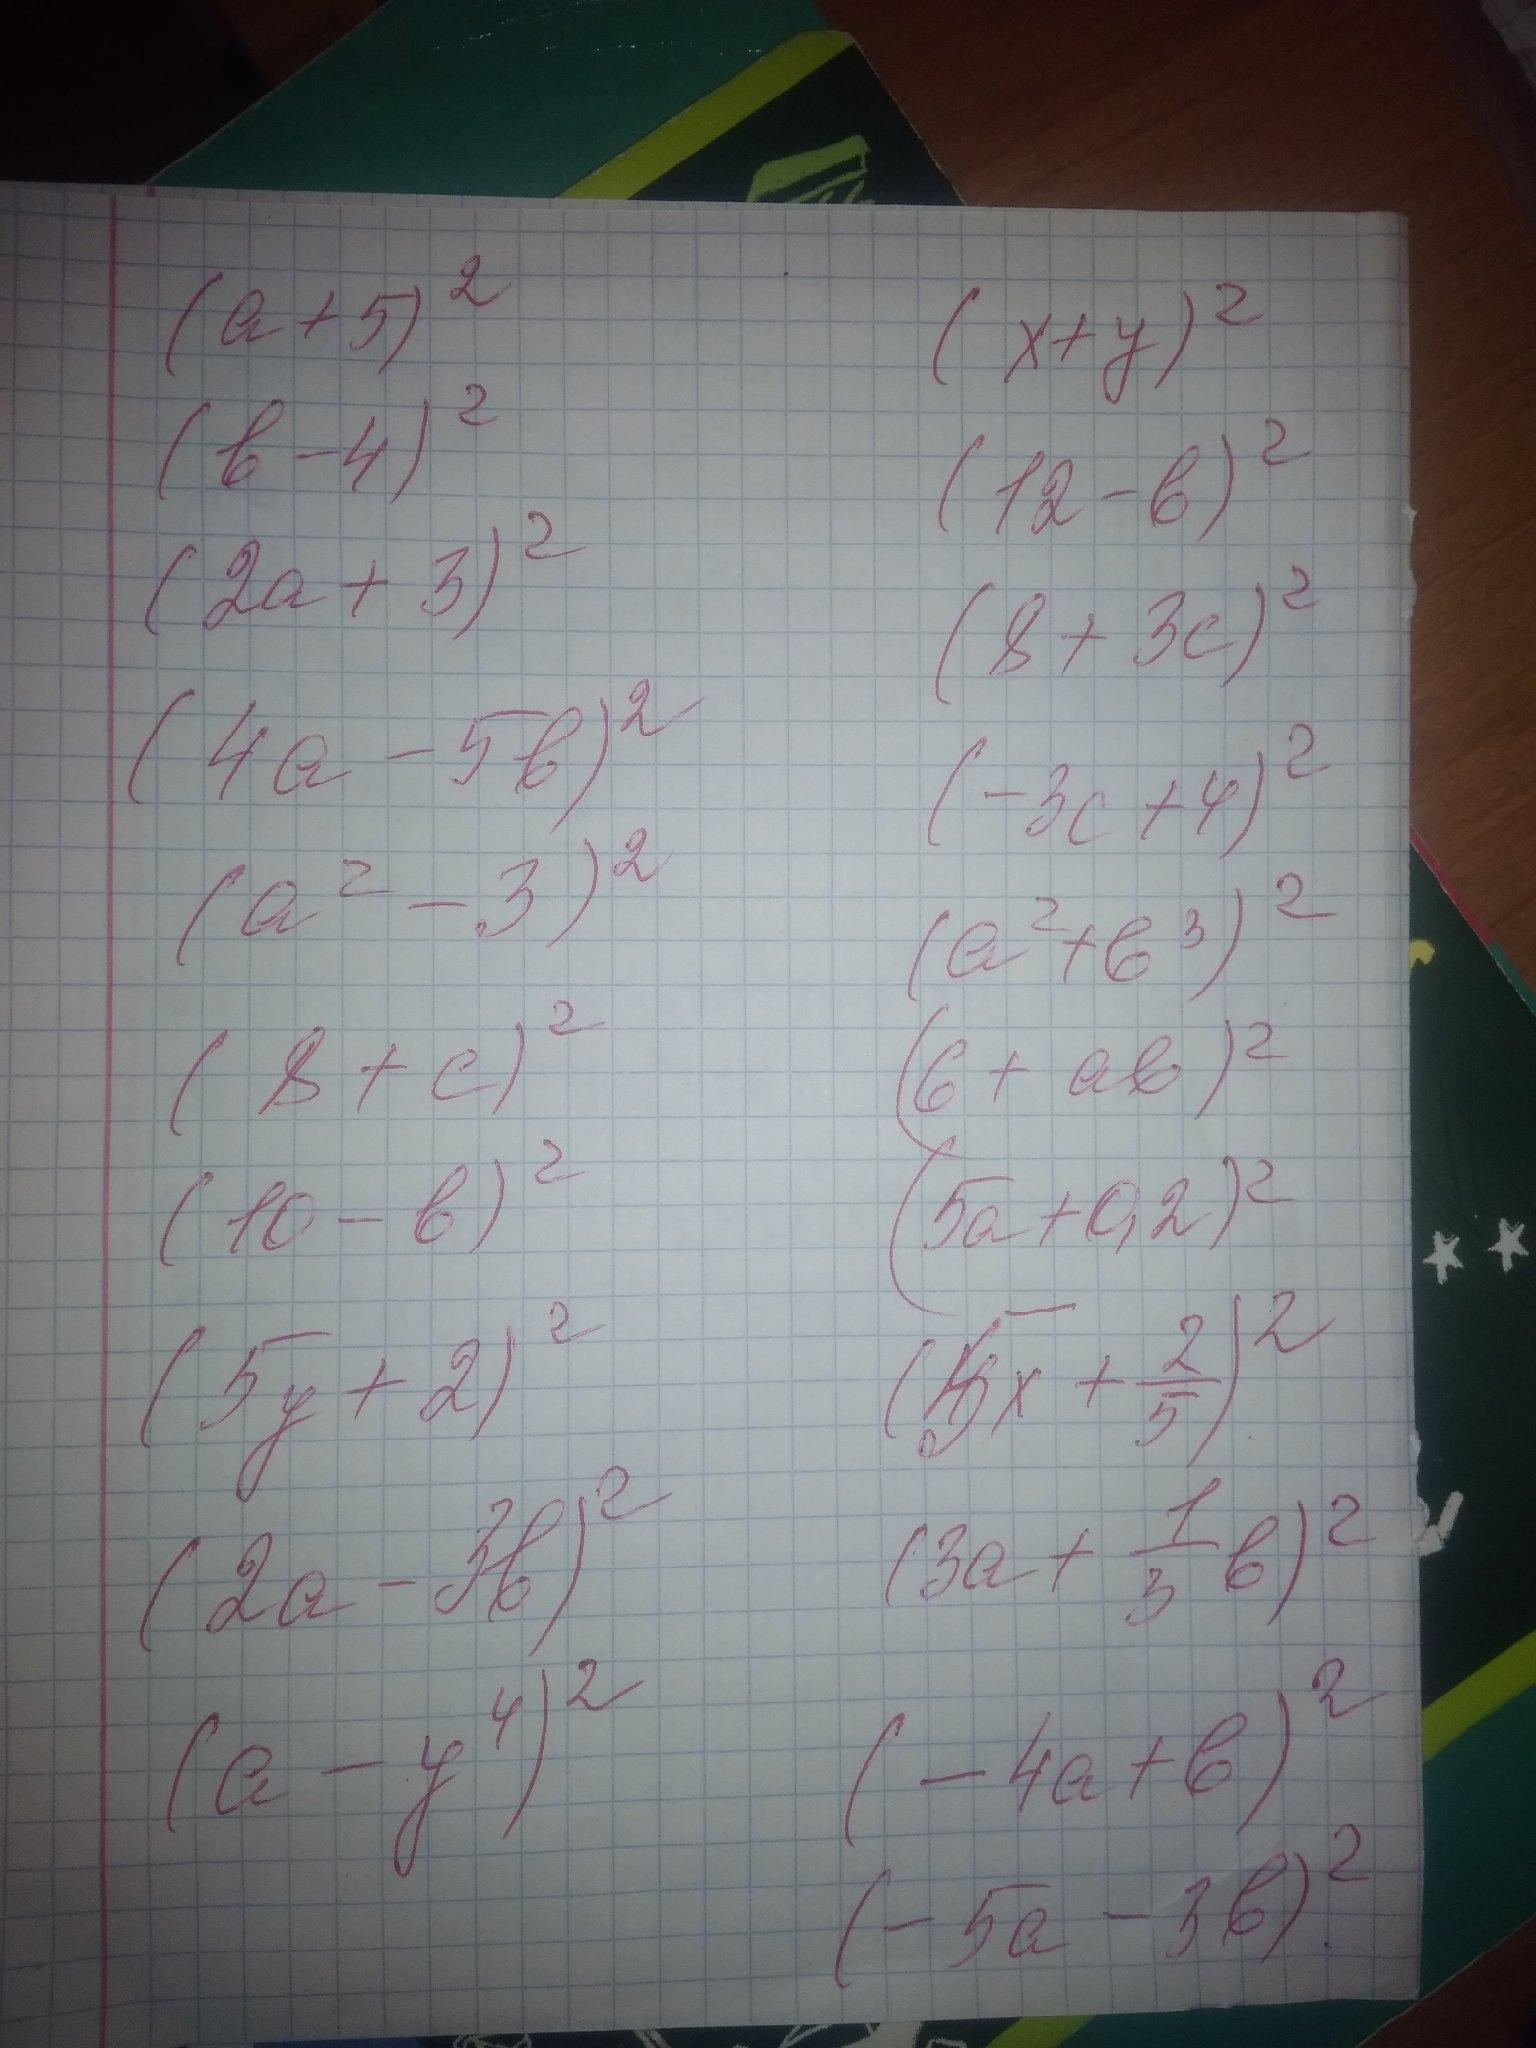 (a+5)²
(в-4)²
(2a+3)²
(4a-5в)²
(a²-3)²
(8+c)²
(10-в)²
(5y+2)²
(2a-3в)²
(a-y⁴)²
(x+y)²
(12-в)²
(8+3c)²
(-3c+4)²
(a²+в³)²
(6+aв)²
(5a+0,2)²
(5x+2/5)²
(3a+1/3в)²
(-4a+в)²
(-5a-3в)²